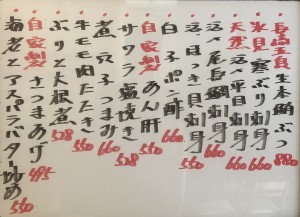 長崎産生本鮪ぶつ 880
氷見寒ぶり刺身 660
天然活〆平目刺身 660
活〆尾長鯛刺身 660
活ほっき貝刺身 550
白子ポン酢 660
自家製あん肝 550
サワラ塩焼き 528
煮穴子つまみ 660
牛モモ肉たたき 550
ぶりと大根煮 528
自家製さつまあげ 495
海老とアスパラバター炒め 550